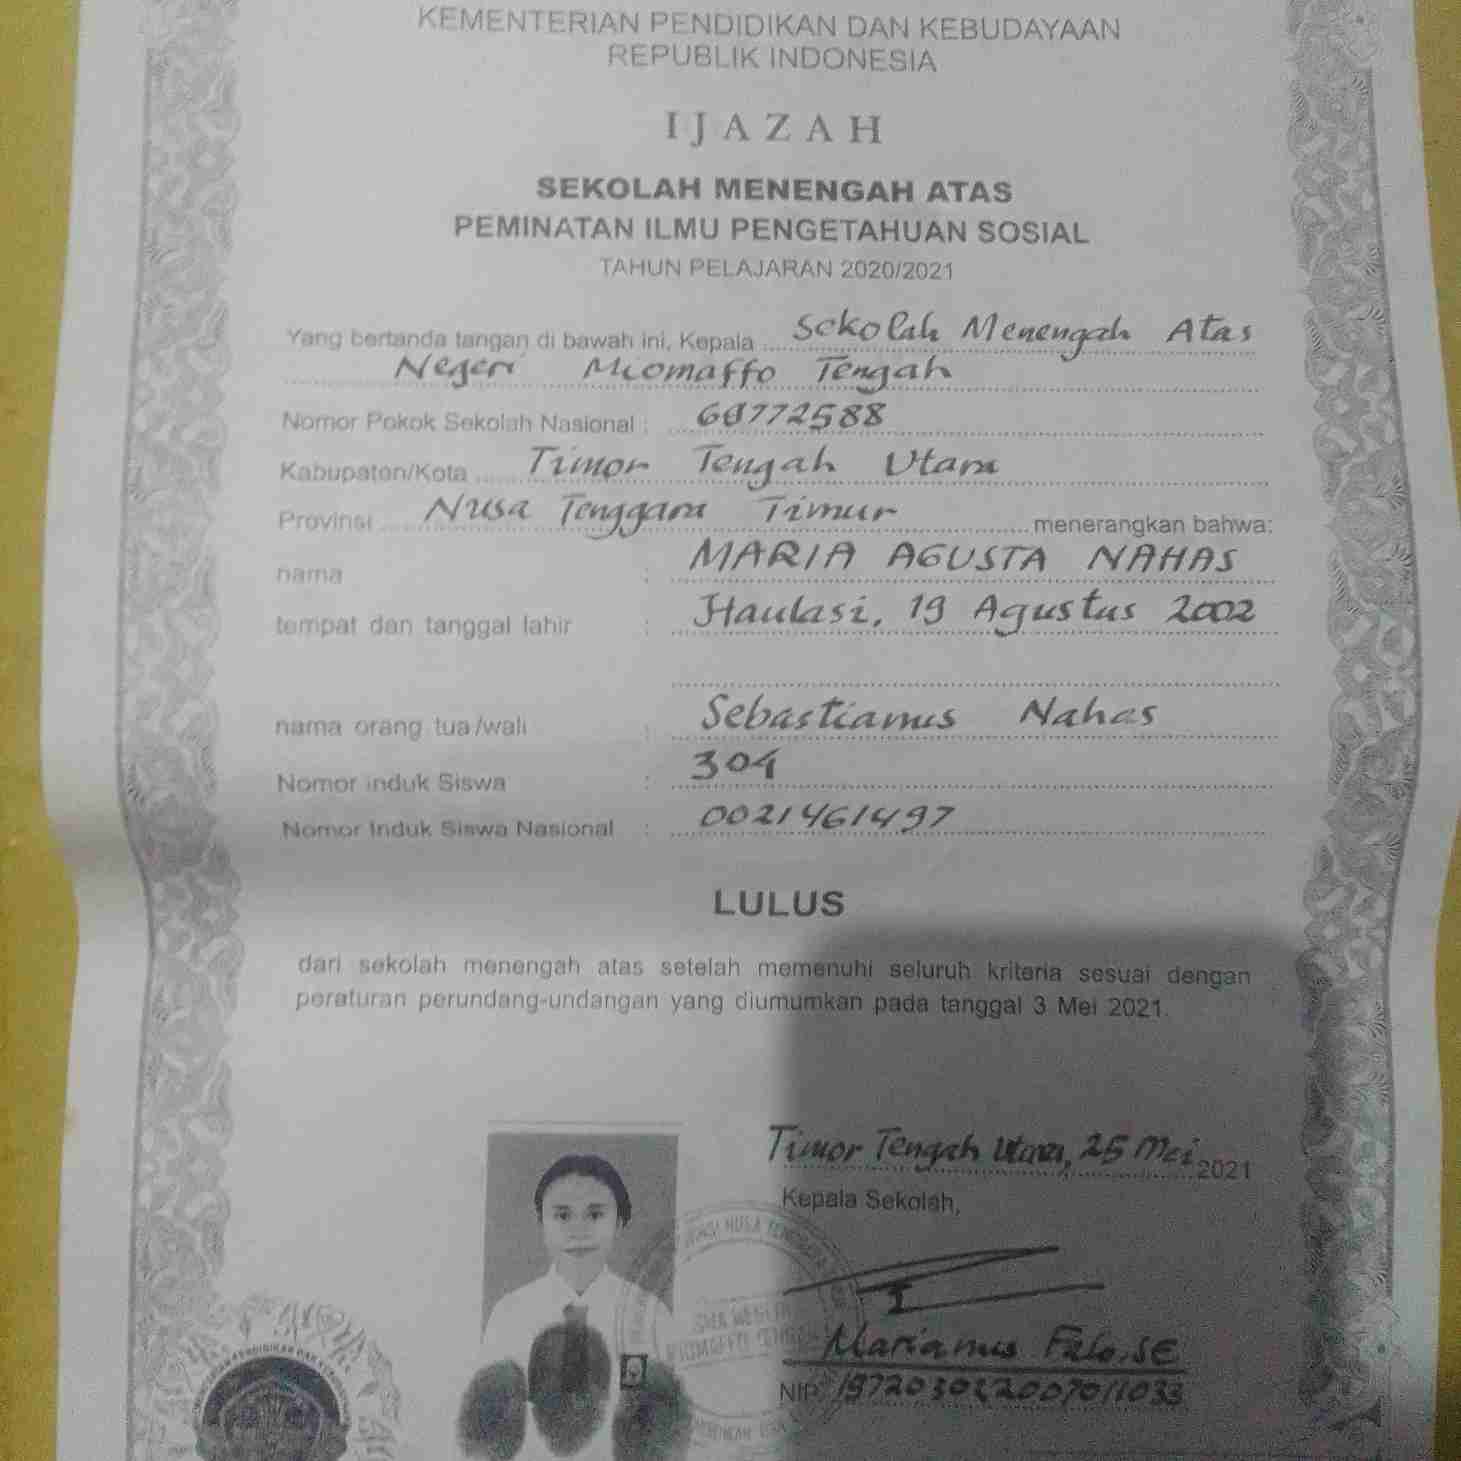 KEMENTERIAN PENDIDIKAN DAN KEBUDAYAAN
REPUBLIK INDONESIA
IJAZAH
SEKOLAH MENENGAH ATAS
PEMINATAN ILMU PENGETAHUAN SOSIAL
TAHUN PELAJARAN 2020/2021
Yang bertanda tangan di bawah ini, Kepala Sekolah Menengah Atas
Negeri Miomaffo Tengah
Nomor Pokok Sekolah Nasional : 69772588
Kabupaten/Kota Timor Tengah Utara
Provinsi Nusa Tenggara Timur menerangkan bahwa:
nama : MARIA AGUSTA NAHAS
tempat dan tanggal lahir : Haulasi, 19 Agustus 2002
nama orang tua/wali : Sebastianus Nahas
Nomor induk Siswa : 304
Nomor Induk Siswa Nasional : 0021461497
LULUS
dari sekolah menengah atas setelah memenuhi seluruh kriteria sesuai dengan
peraturan perundang-undangan yang diumumkan pada tanggal 3 Mei 2021.
Timor Tengah Utara, 25 Mei 2021
Kepala Sekolah,
Marianus Falo, SE
NIP